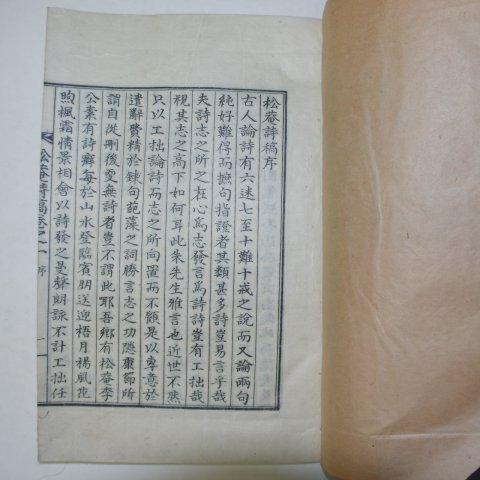 松菴詩稿序
古人論詩有六迷七至十難十戒之說而又論兩句
純好難得而摭句指證者其類甚多詩豈易言乎哉
夫詩志之所之在心爲志發言爲詩詩豈有工拙哉
視其志之高下如何耳此朱先生雅言也近世不然
只以工拙論詩而志之所向置而不顧是以專意於
遣辭費精於鍊句葩藻之詞勝言志之功隱康節所
謂自從刪後更無詩者豈不謂此耶吾鄕有松菴李
公素有詩癖每於山水登臨賓朋送迎梧月楊風花
煦楓霜情景相會以詩發之曼聲朗詠不計工拙任
松菴詩稿卷之一 序 一